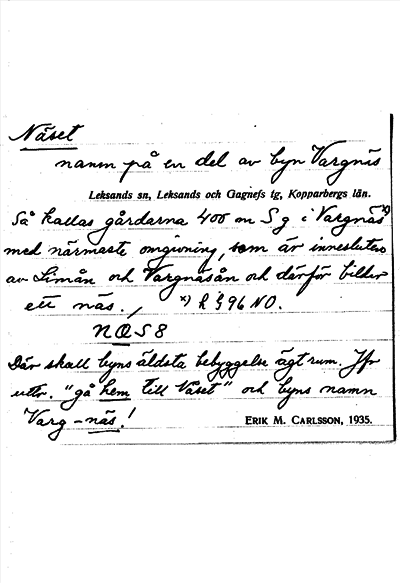 Näset
namn på en del av byn Vargnäs
Leksands sn, Leksands och Gagnefs tg, Kopparbergs län.
Så kallas gårdarna 400 m S g i Vargnäs x)
med närmaste omgivning, som är innesluten
av Limån och Vargnäsån och därför bildar
ett näs. / x) R 896 NO.
När skall byns äldsta bebyggelse ägt rum. Jfr
uttr. "gå hem till Näset" och byns namn
Varg-näs!
ERIK M. CARLSSON, 1935.